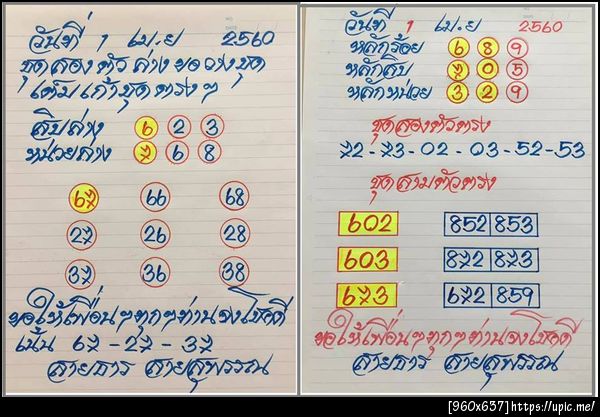 วันที่ 1 เม.ย 2560
ชุดสองตัวล่างขอวางชุด
เต็มเก้าชุดตรงๆ
สิบล่าง 6 2 3
หน่วยล่าง 7 6 8
67 66 68
27 26 28
37 36 38
ขอให้เพื่อนๆทุกๆท่านจงโชคดี
เน้น 67 - 27 - 37
สายธาร สายสุพรรณ
วันที่ 1 เม.ย 2560
หลักร้อย 6 8 9
หลักสิบ 7 0 5
หลักหน่วย 3 2 9
ชุดสองตัวตรง
72 - 73 - 02 - 03 - 52 - 53
ชุดสามตัวตรง
602 852 853
603 872 873
673 672 859
ขอให้เพื่อนๆทุกๆท่านจงโชคดี
สายธาร สายสุพรรณ
[960x637] https://upic.me/